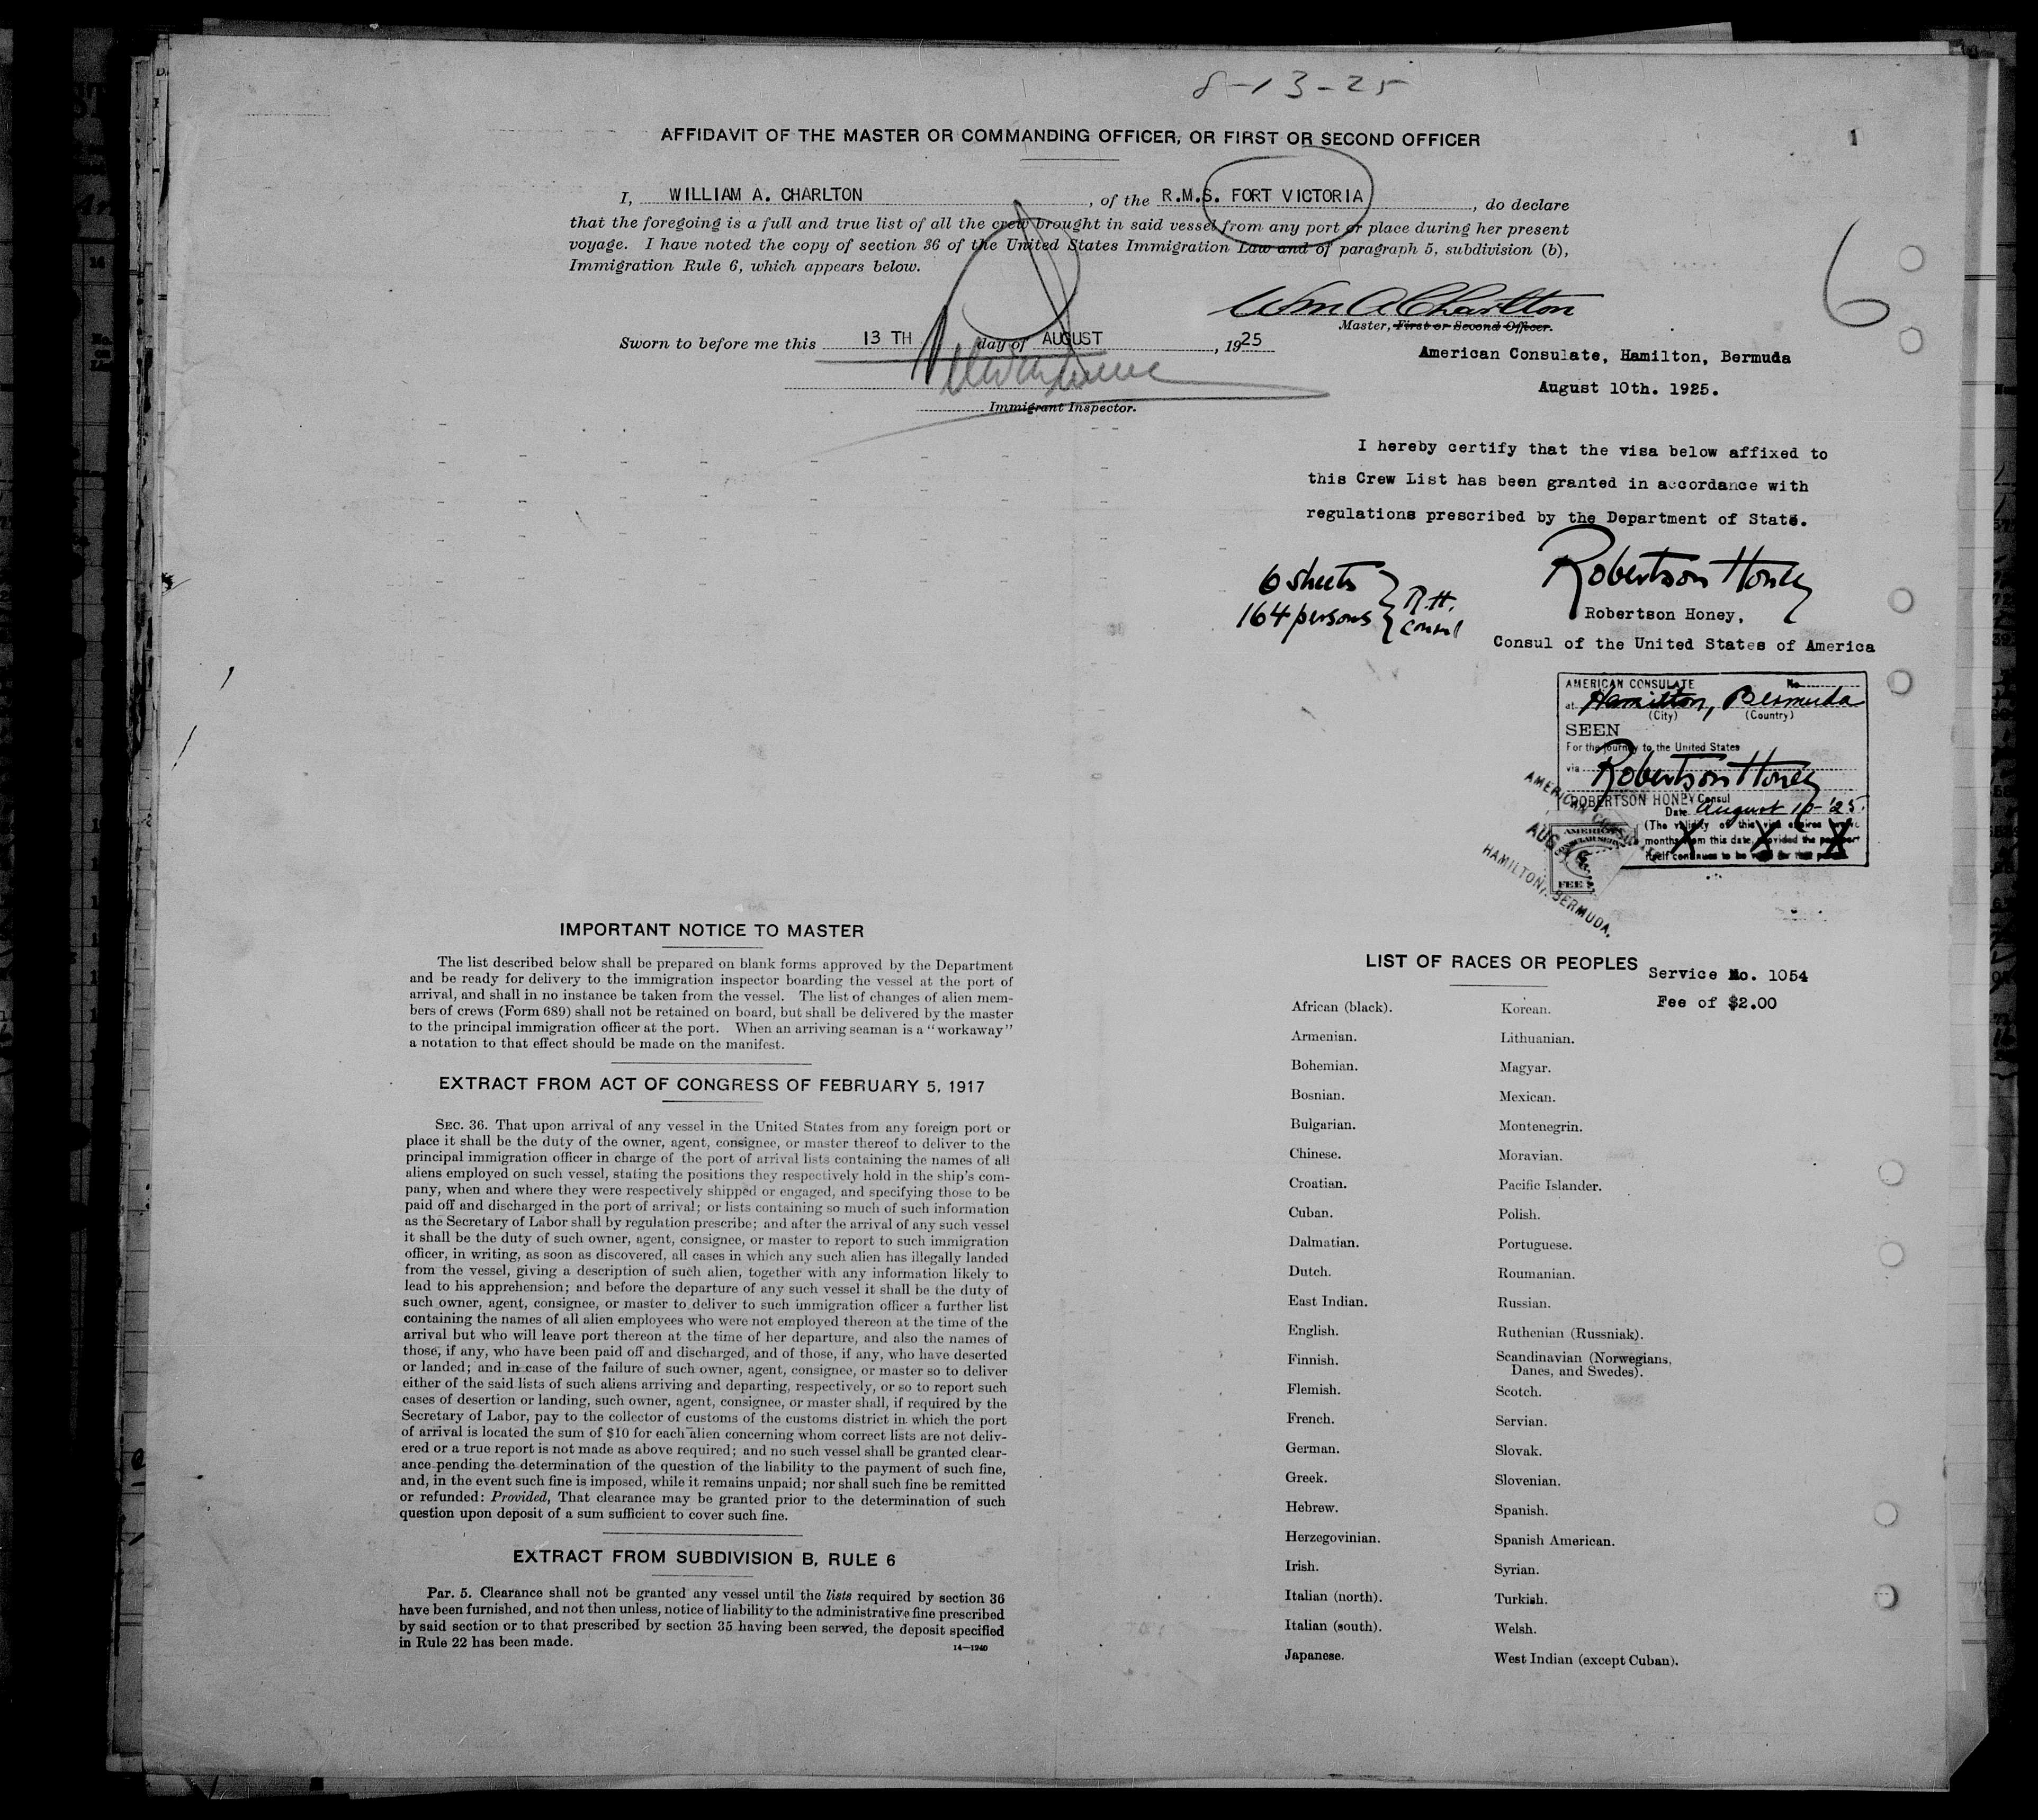 8-13-25
AFFIDAVIT OF THE MASTER OR COMMANDING OFFICER, OR FIRST OR SECOND OFFICER
1
I, WILLIAM A. CHARLTON, of the R.M.S. FORT VICTORIA, do declare
that the foregoing is a full and true list of all the crew brought in said vessel from any port or place during her present
voyage. I have noted the copy of section 36 of the United States Immigration Law and of paragraph 5, subdivision (b),
Immigration Rule 6, which appears below.
6
Wm A Charlton
Master, First or Second Officer.
Sworn to before me this 13 TH day of AUGUST, 1925
Immigrant Inspector.
American Consulate, Hamilton, Bermuda
August 10th. 1925.
I hereby certify that the visa below affixed to
this Crew List has been granted in accordance with
regulations prescribed by the Department of State.
Robertson Honey
6 sheets
164 persons
R.H.
Consul
Robertson Honey,
Consul of the United States of America
AMERICAN CONSULATE No.
at Hamilton, Bermuda
(City) (Country)
SEEN
For the journey to the United States
via
Robertson Honey
ROBERTSON HONEY Consul
Date August 10-'25
(The validity of this visa expires twelve
months from this date, provided the passport
itself continues to be valid for that period.
AMERICAN CONSULATE
AUG
HAMILTON, BERMUDA.
AMERICAN
CONSULAR SERVICE
FEE
IMPORTANT NOTICE TO MASTER
The list described below shall be prepared on blank forms approved by the Department
and be ready for delivery to the immigration inspector boarding the vessel at the port of
arrival, and shall in no instance be taken from the vessel. The list of changes of alien mem-
bers of crews (Form 689) shall not be retained on board, but shall be delivered by the master
to the principal immigration officer at the port. When an arriving seaman is a "workaway"
a notation to that effect should be made on the manifest.
EXTRACT FROM ACT OF CONGRESS OF FEBRUARY 5, 1917
SEC. 36. That upon arrival of any vessel in the United States from any foreign port or
place it shall be the duty of the owner, agent, consignee, or master thereof to deliver to the
principal immigration officer in charge of the port of arrival lists containing the names of all
aliens employed on such vessel, stating the positions they respectively hold in the ship's com-
pany, when and where they were respectively shipped or engaged, and specifying those to be
paid off and discharged in the port of arrival; or lists containing so much of such information
as the Secretary of Labor shall by regulation prescribe; and after the arrival of any such vessel
it shall be the duty of such owner, agent, consignee, or master to report to such immigration
officer, in writing, as soon as discovered, all cases in which any such alien has illegally landed
from the vessel, giving a description of such alien, together with any information likely to
lead to his apprehension; and before the departure of any such vessel it shall be the duty of
such owner, agent, consignee, or master to deliver to such immigration officer a further list
containing the names of all alien employees who were not employed thereon at the time of the
arrival but who will leave port thereon at the time of her departure, and also the names of
those, if any, who have been paid off and discharged, and of those, if any, who have deserted
or landed; and in case of the failure of such owner, agent, consignee, or master so to deliver
either of the said lists of such aliens arriving and departing, respectively, or so to report such
cases of desertion or landing, such owner, agent, consignee, or master shall, if required by the
Secretary of Labor, pay to the collector of customs of the customs district in which the port
of arrival is located the sum of $10 for each alien concerning whom correct lists are not deliv-
ered or a true report is not made as above required; and no such vessel shall be granted clear-
ance pending the determination of the question of the liability to the payment of such fine,
and, in the event such fine is imposed, while it remains unpaid; nor shall such fine be remitted
or refunded: Provided, That clearance may be granted prior to the determination of such
question upon deposit of a sum sufficient to cover such fine.
EXTRACT FROM SUBDIVISION B, RULE 6
Par. 5. Clearance shall not be granted any vessel until the lists required by section 36
have been furnished, and not then unless, notice of liability to the administrative fine prescribed
by said section or to that prescribed by section 35 having been served, the deposit specified
in Rule 22 has been made.
14—1240
LIST OF RACES OR PEOPLES
Service No. 1054
Fee of $2.00
African (black).
Armenian.
Bohemian.
Bosnian.
Bulgarian.
Chinese.
Croatian.
Cuban.
Dalmatian.
Dutch.
East Indian.
English.
Finnish.
Flemish.
French.
German.
Greek.
Hebrew.
Herzegovinian.
Irish.
Italian (north).
Italian (south).
Japanese.
Korean.
Lithuanian.
Magyar.
Mexican.
Montenegrin.
Moravian.
Pacific Islander.
Polish.
Portuguese.
Roumanian.
Russian.
Ruthenian (Russniak).
Scandinavian (Norwegians,
Danes, and Swedes).
Scotch.
Servian.
Slovak.
Slovenian.
Spanish.
Spanish American.
Syrian.
Turkish.
Welsh.
West Indian (except Cuban).